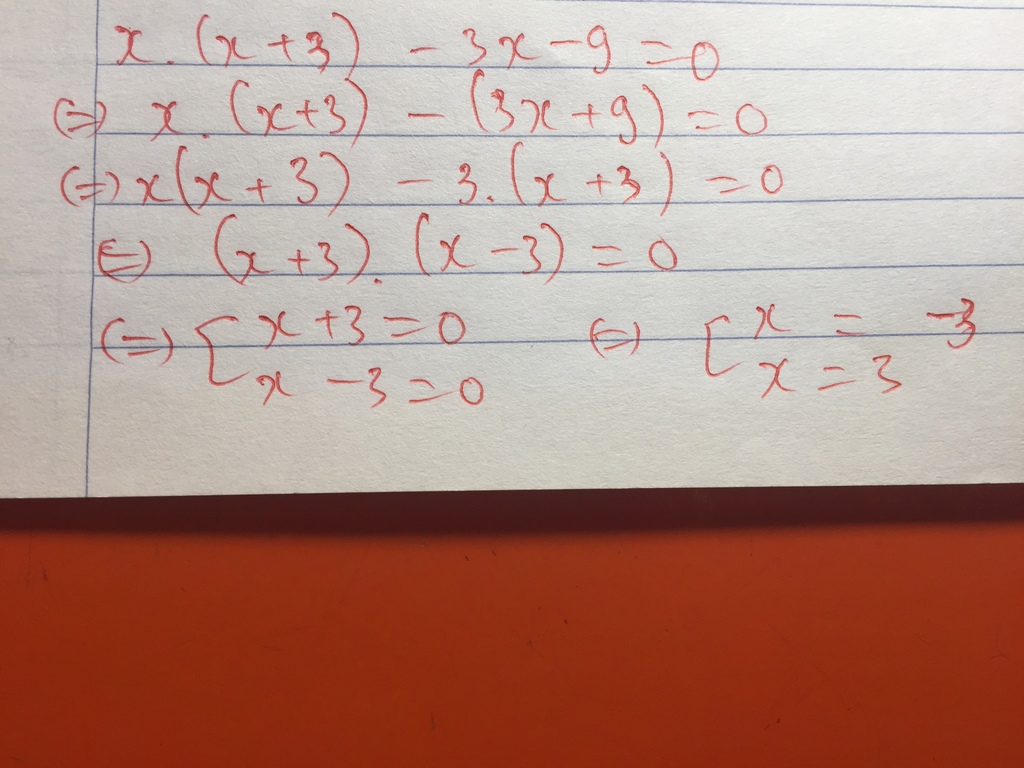 x . (x + 3) - 3x - 9 = 0
(=) x . (x+3) - (3x + 9) = 0
(=) x(x + 3) - 3 . (x + 3) = 0
(=) (x + 3) . (x - 3) = 0
(=) [ x + 3 = 0 (=) [ x = -3
x - 3 = 0 x = 3